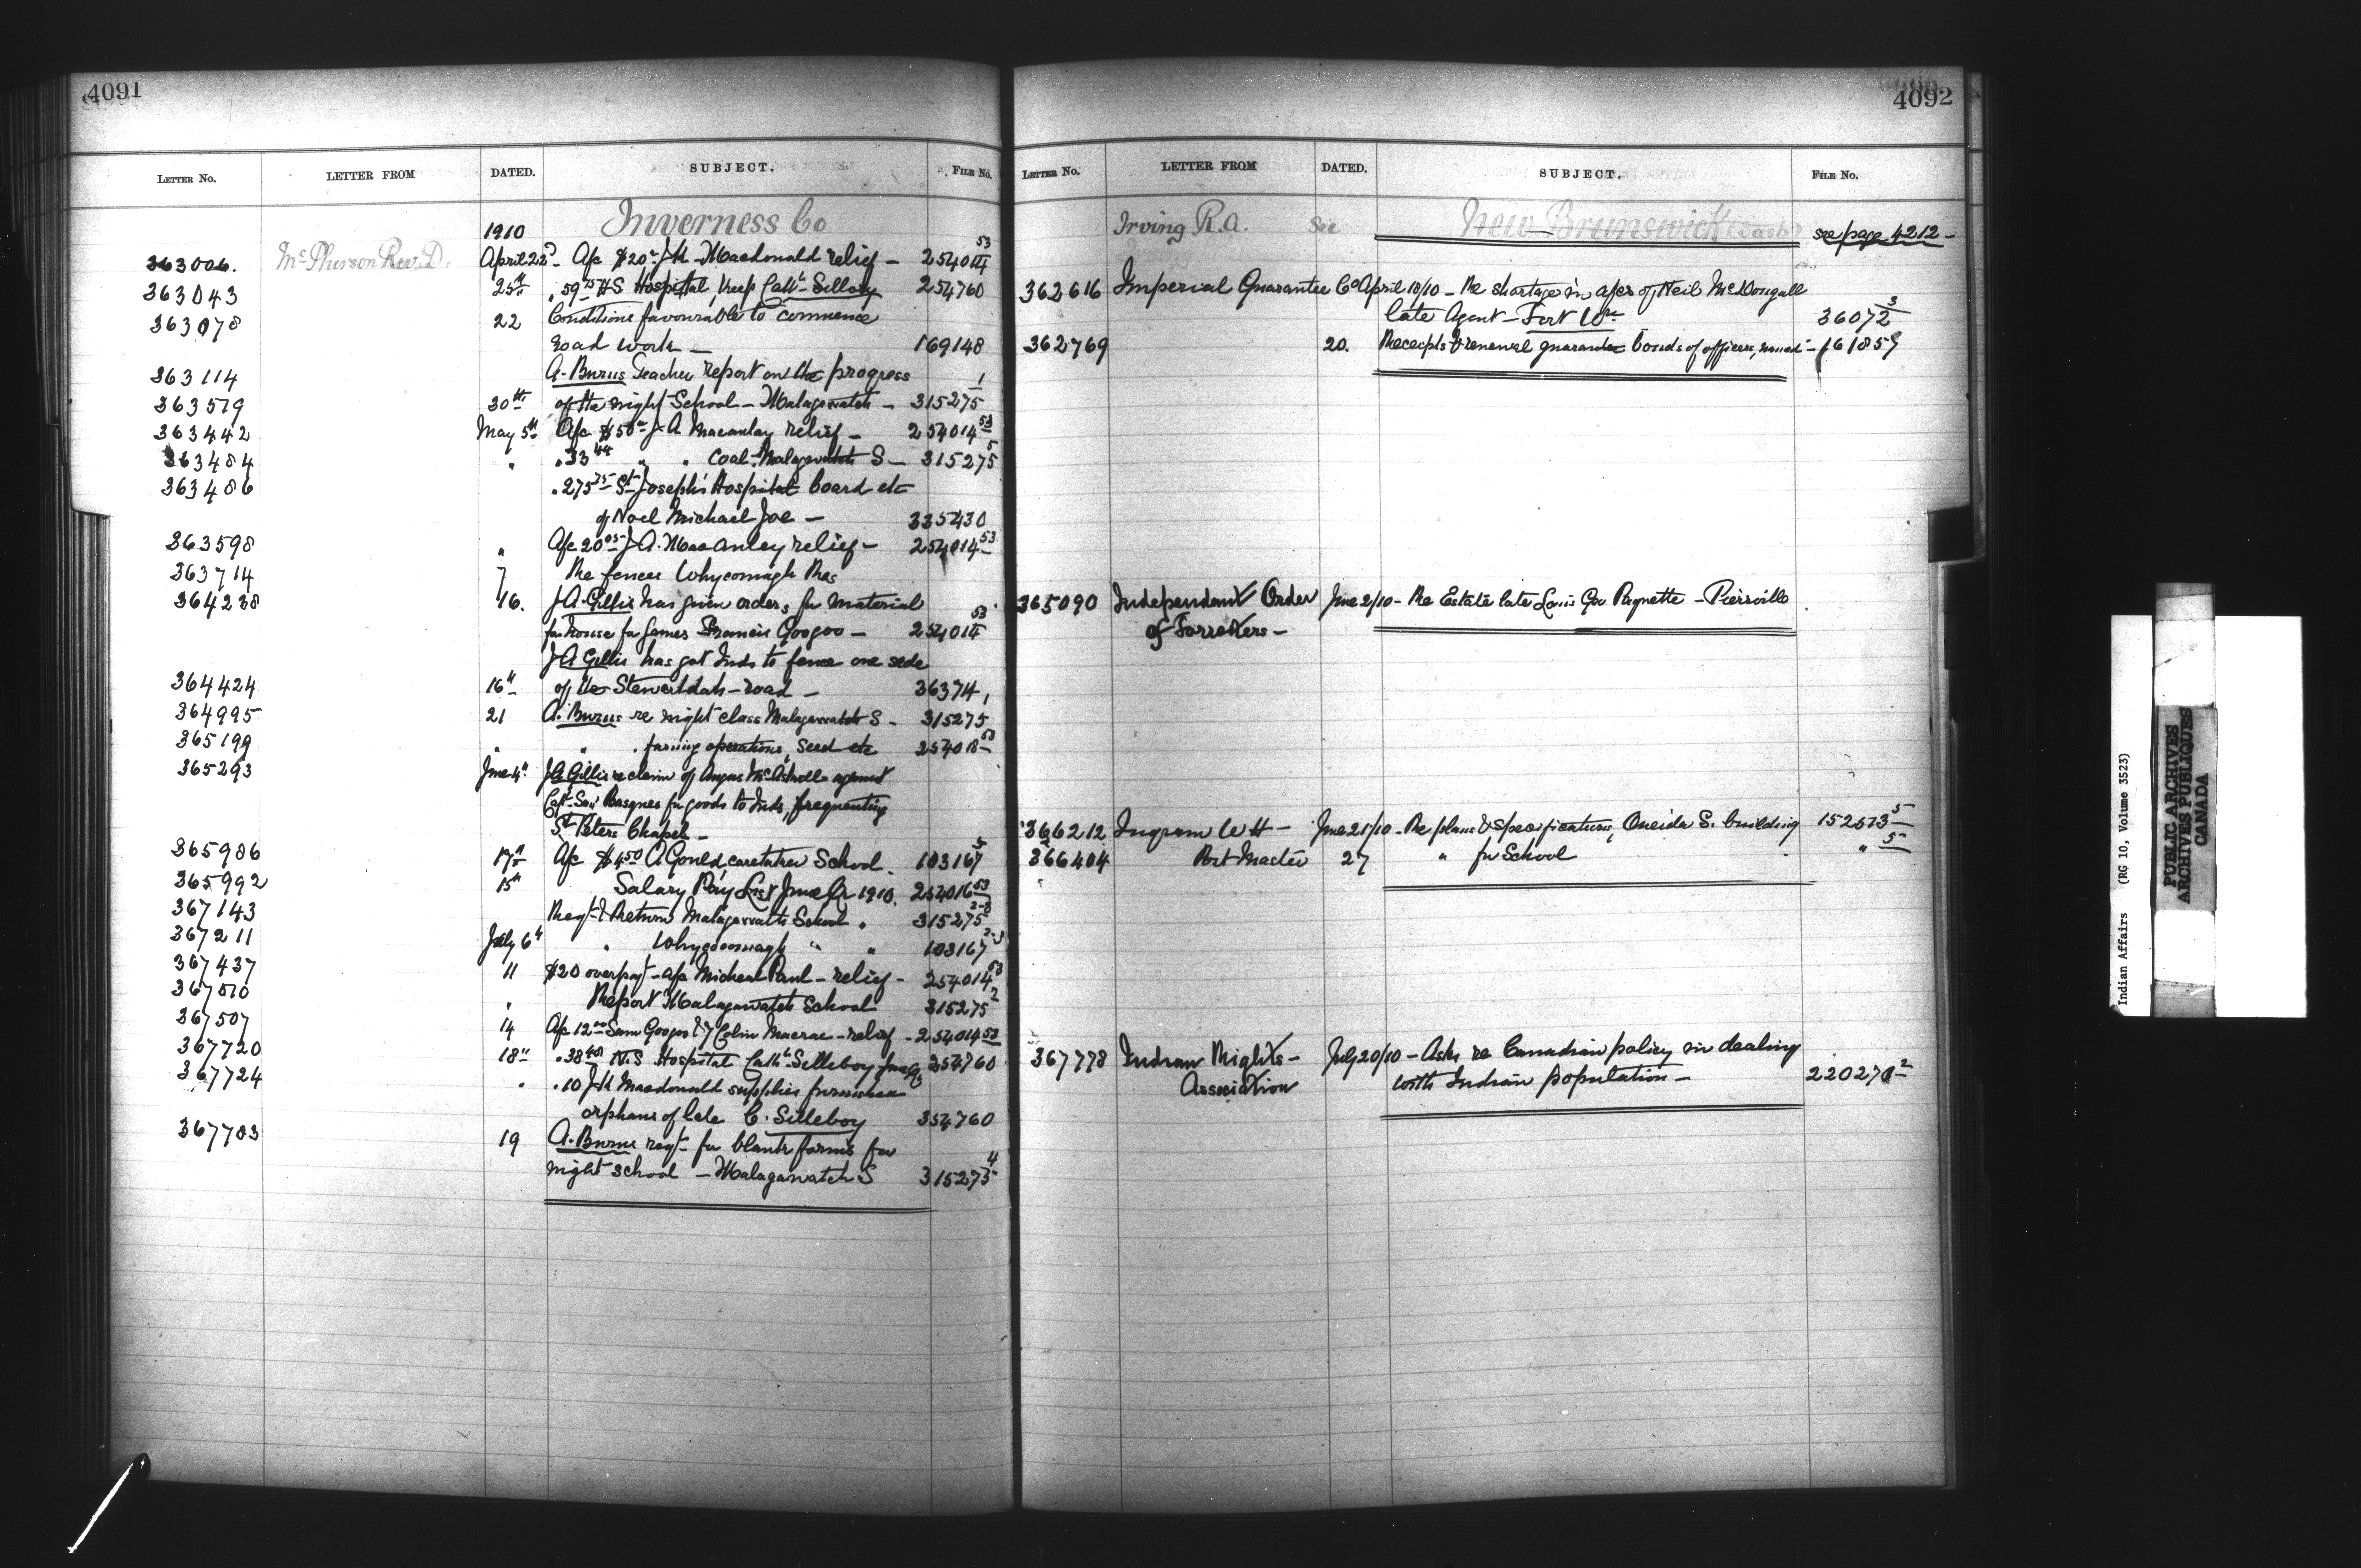 4091
LETTER No. LETTER FROM DATED. SUBJECT. FILE No.
1910 Inverness Co
363006. McPherson Rev. D. April 22d A/c $20 J H Macdonald relief — 254014 53
363043 25th " 59 75 N S Hospital, keep Cath Silleboy 254760
363078 22 Conditions favourable to commence
road work — 169148
363114 A. Burns Teacher report on the progress
363519 30th of the night School — Malagawatch — 315275 1
363442 May 5th A/c $50 J A Macaulay relief — 254014 53
363484 " " 33 44 " " Coal, Malagawatch S — 315275 5
363486 " 275 75 St Joseph's Hospital board etc
of Noel Michael Joe — 335430
363598 " A/c 20 05 J A. MacAuley relief — 254014 53
363714 7 Re fences Whycomagh Res
364238 16. J A. Gillis has given orders for material
for house for James Francis Googoo — 254014 53
J A Gillis has got Inds to fence one side
364424 16th of the Stewartdale — road — 36374,
364995 21 A. Burns re night class Malagawatch S — 315275
365199 " " . farming operations, seed etc 254018 53
365293 June 4th J A Gillis re claim of Angus against
for goods to Inds, frequenting
St Peters Chapel —
365986 17th A/c $4 50 A Gould caretaker School. 103167 5
365992 15th Salary Pay List June Qr 1910. 254016 53
367143 Reqt & Return Malagawatch School " 315275 2-3
367211 July 6th " Whycocomagh " " 103167 2-3
367437 11 $20 overpayt — a/c Micheal Paul — relief — 254014 53
367510 " Report Malagawatch School 315275 2
367507 14 A/c 12 Sam Googoo & Colin Macrae — relief — 254014 53
367720 18th " 38 N.S Hospital Cath Silleboy June 254760
367724 " " 10 J H Macdonald supplies furnished
orphans of late C. Silleboy 354760
367783 19 A. Burns reqt for blank forms for
night school — Malagawatch S 315275 4
4092
LETTER No. LETTER FROM DATED. SUBJECT. FILE No.
Irving R. A. See New Brunswick (Cash) see page 4212 —
362616 Imperial Guarantee Co April 18/10 — Re shortage in a/cs of Neil McDougall
late Agent — Fort Wm 36072 3
362769 20. Receipts & renewal guarantee bonds of officers, named — 161857
365090 Independent Order June 2/10 — Re Estate late Louis Paquette — Pierrville
of Forresters —
366212 Ingram W H — June 21/10 — Re plans & specifications, Oneida S. building 152573 5
366404 Port Master 27 " for School " " 5
367778 Indian Rights — July 20/10 — Asks re Canadian policy in dealing
Association with Indian population — 220270 2
Indian Affairs (RG 10, Volume 3523)
PUBLIC ARCHIVES
ARCHIVES PUBLIQUES
CANADA